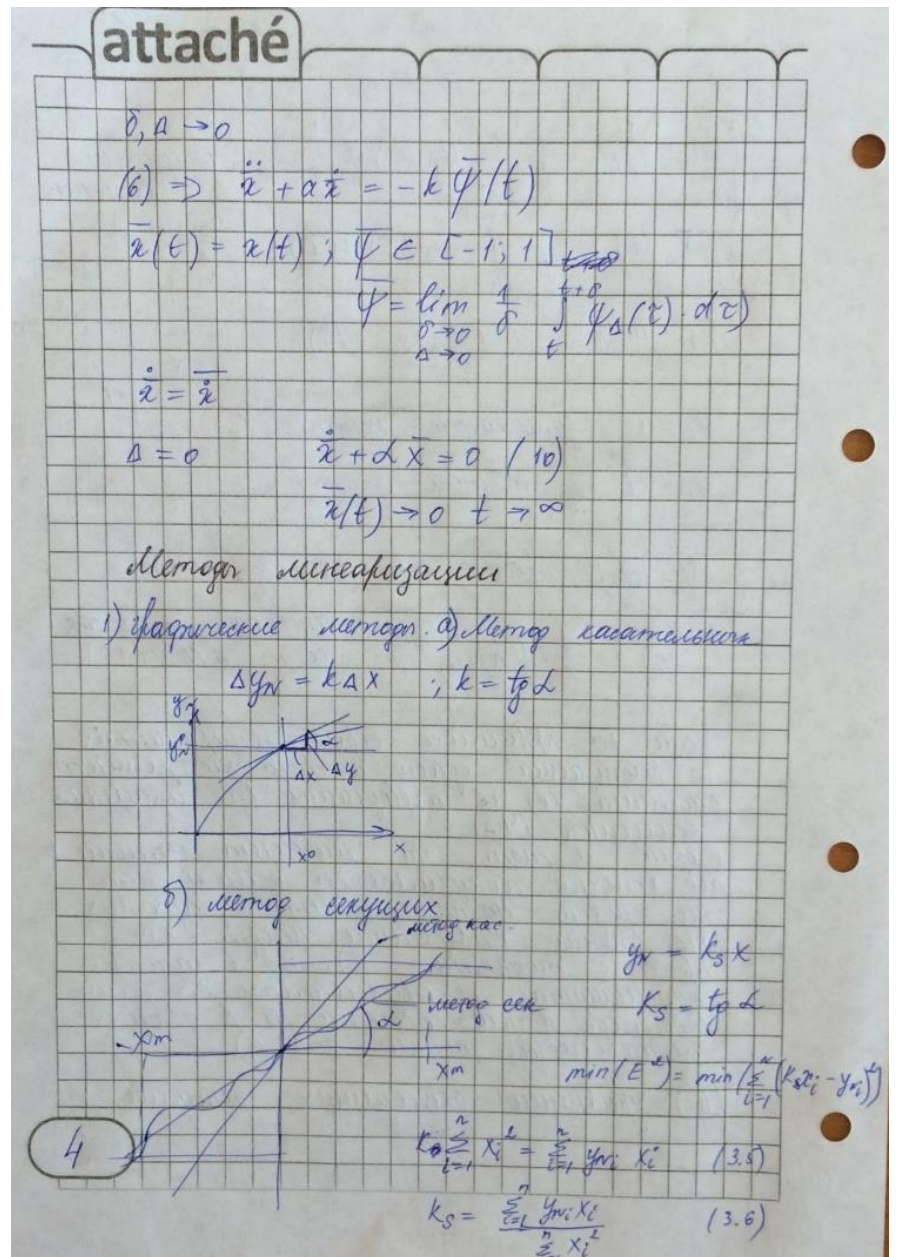 attaché
δ, Δ → 0
(6) ⇒ ẍ + aẋ = -k ψ̄(t)
x̄(t) = x(t) ; ψ̄ ∈ [-1; 1]
ψ̄ = lim 1/δ ∫ ψ_Δ(τ) · dτ)
δ→0 t+δ
Δ→0 t
Δ = 0 ẋ̄ + α x̄ = 0 (10)
x̄(t) → 0 t → ∞
Методы линеаризации
1) Графические методы. а) Метод касательных
Δy_N = kΔx ; k = tg α
y_N
y⁰_N
α
Δx Δy
x⁰ x
б) метод секущих
метод кас.
y_N = k_s x
метод сек
K_s = tg α
α
-Xm
Xm
min(E²) = min(∑_{i=1}^{n} (k_s x_i - y_{Ni})²)
4
K_s ∑_{i=1}^{n} x_i² = ∑_{i=1}^{n} y_{Ni} x_i (3.5)
k_s = ∑_{i=1}^{n} y_{Ni} x_i / ∑ x_i² (3.6)